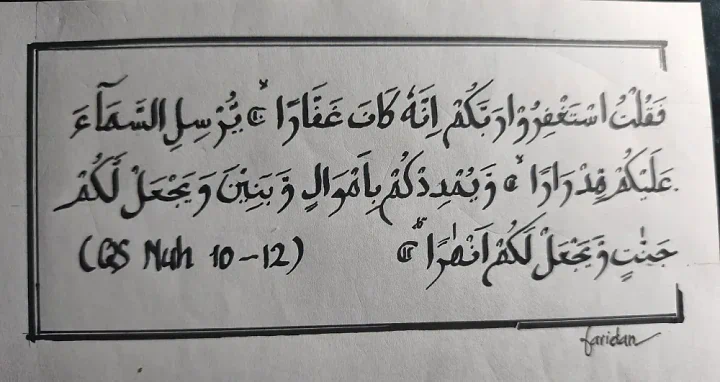 فَقُلْتُ اسْتَغْفِرُوْا رَبَّكُمْ اِنَّهٗ كَانَ غَفَّارًاۙ ۝١٠ يُّرْسِلِ السَّمَاۤءَ
عَلَيْكُمْ مِّدْرَارًاۙ ۝ وَّيُمْدِدْكُمْ بِاَمْوَالٍ وَّبَنِيْنَ وَيَجْعَلْ لَّكُمْ
جَنّٰتٍ وَّيَجْعَلْ لَّكُمْ اَنْهٰرًاۗ ۝١٢ (QS Nuh 10-12)
faridan